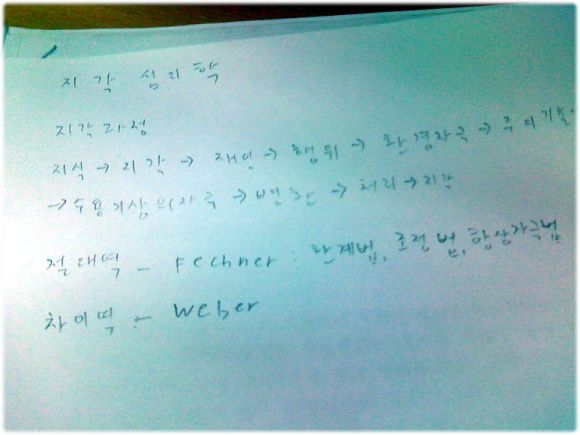 지각 심리학
지각과정
지식 → 지각 → 재인 → 행위 → 환경자극 → 주의기울
→ 수용기상의 자극 → 변환 → 처리 → 지각
절대역 - Fechner : 한계법, 조정법, 항상자극법
차이역 - Weber